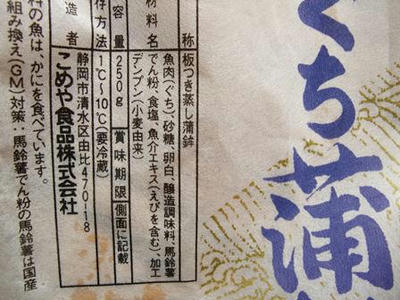 ぐち蒲
称 板つき蒸し蒲鉾
材料名 魚肉(ぐち)、砂糖、卵白、醸造調味料、馬鈴薯
でん粉、食塩、魚介エキス(えびを含む)、加工
デンプン(小麦由来)
容量 250g 賞味期限 側面に記載
存方法 1℃～10℃(要冷蔵)
造者 静岡市清水区由比470-18
こめや食品株式会社
料の魚は、かにを食べています。
組み換え(GM)対策:馬鈴薯でん粉の馬鈴薯は国産